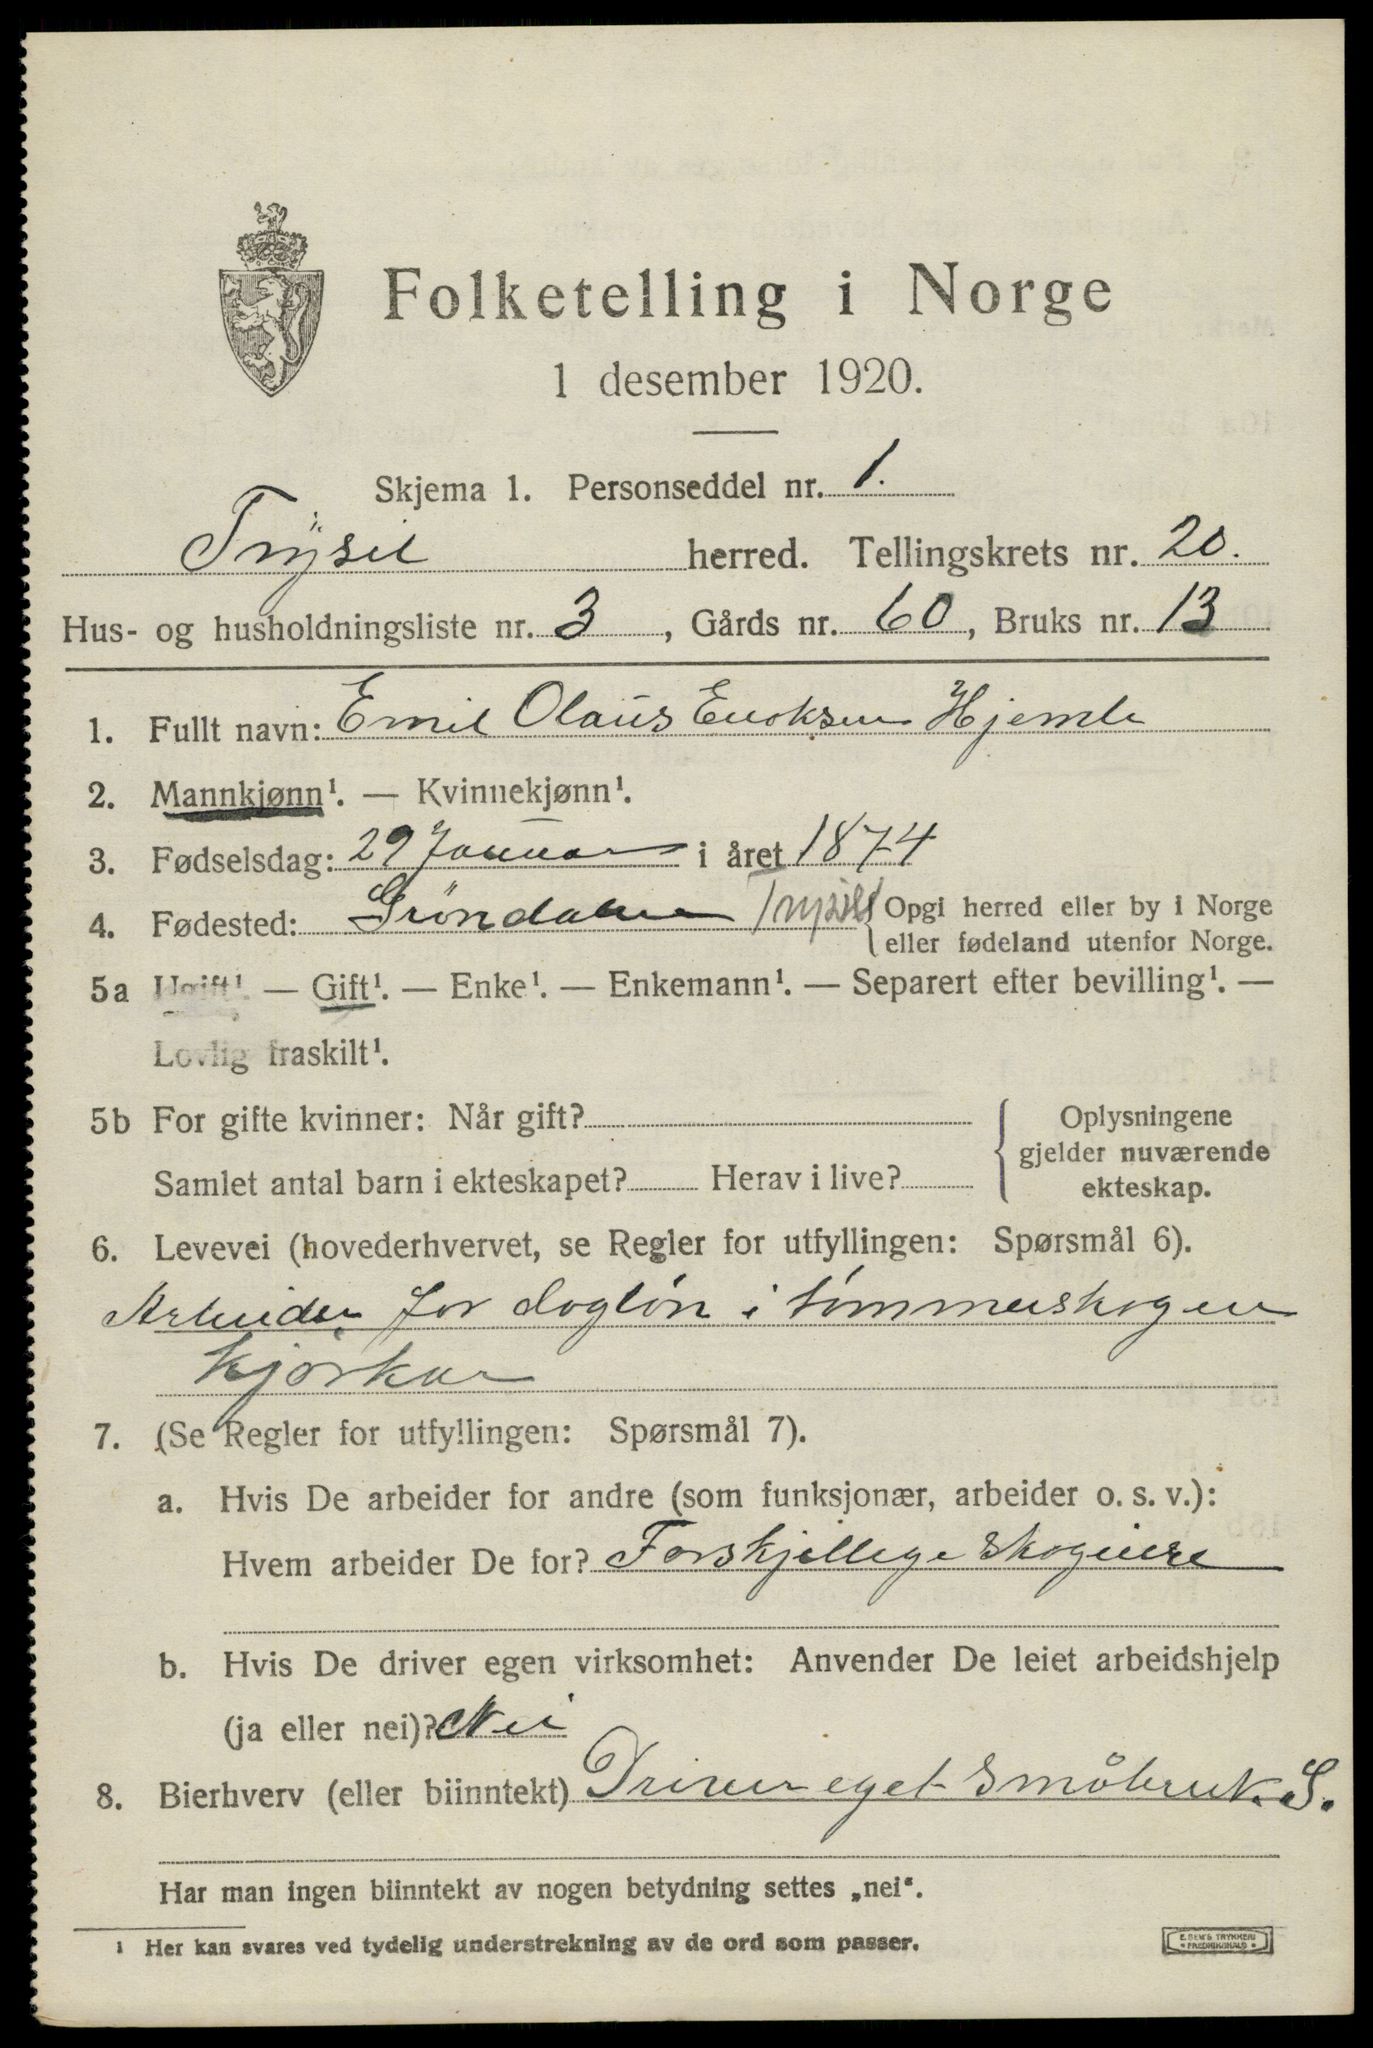 Folketelling i Norge
1 desember 1920.
Skjema 1. Personseddel nr. 1.
Trysil herred. Tellingskrets nr. 20.
Hus- og husholdningsliste nr. 3, Gårds nr. 60, Bruks nr. 13
1. Fullt navn: Emil Olaus Enoksen Hjemli
2. Mannkjønn¹. — Kvinnekjønn¹.
3. Fødselsdag: 29 Januar i året 1874
4. Fødested: Gröndalen Trysil { Opgi herred eller by i Norge
eller fødeland utenfor Norge.
5a Ugift¹. — Gift¹. — Enke¹. — Enkemann¹. — Separert efter bevilling¹. —
Lovlig fraskilt¹.
5b For gifte kvinner: Når gift? { Oplysningene
gjelder nuværende
Samlet antal barn i ekteskapet? Herav i live? ekteskap.
6. Levevei (hovederhvervet, se Regler for utfyllingen: Spørsmål 6).
Arbeider for daglön i tömmerskogen
kjörkar
7. (Se Regler for utfyllingen: Spørsmål 7).
a. Hvis De arbeider for andre (som funksjonær, arbeider o. s. v.):
Hvem arbeider De for? Forskjellege skogeiere
b. Hvis De driver egen virksomhet: Anvender De leiet arbeidshjelp
(ja eller nei)? Nei
8. Bierhverv (eller biinntekt) Driver eget småbruk. S.
Har man ingen biinntekt av nogen betydning settes „nei“.
¹ Her kan svares ved tydelig understrekning av de ord som passer.
E. SEM'S TRYKKERI
• FREDRIKSHALD •